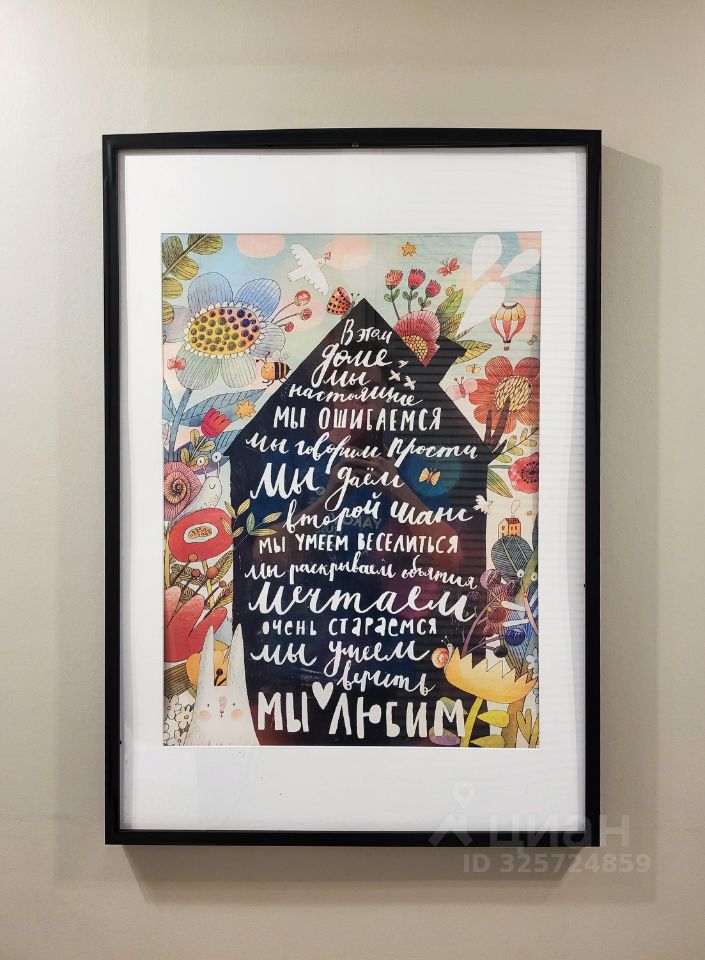 В этом
доме
мы
настоящие
МЫ ОШИБАЕМСЯ
мы говорим прости
Мы даём
второй шанс
МЫ УМЕЕМ ВЕСЕЛИТЬСЯ
мы раскрываем объятия
мечтаем
ОЧЕНЬ СТАРАЕМСЯ
мы умеем
верить
МЫ ЛЮБИМ
циан
ID 325724859